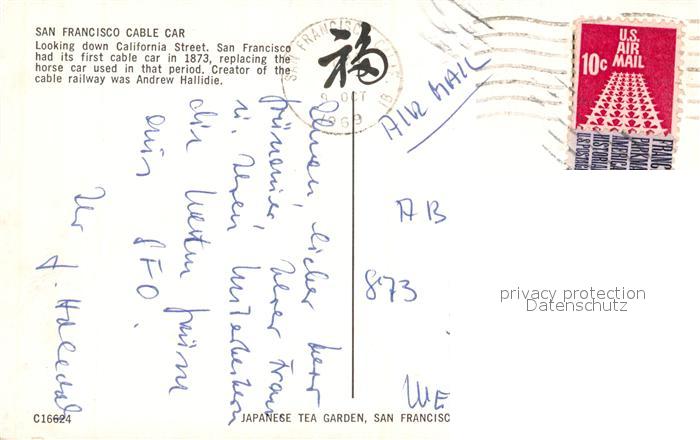 SAN FRANCISCO CABLE CAR
Looking down California Street. San Francisco
had its first cable car in 1873, replacing the
horse car used in that period. Creator of the
cable railway was Andrew Hallidie.
福
SAN FRANCISCO
OCT
1969
U.S.
AIR
MAIL
10c
AIR MAIL
Ihnen, lieber Herr
Ihrer Frau
u. Ihren Mitarbeitern
die besten Grüße
aus SFO.
Ihr
AB
873
WE
privacy protection
Datenschutz
C16624
JAPANESE TEA GARDEN, SAN FRANCISC